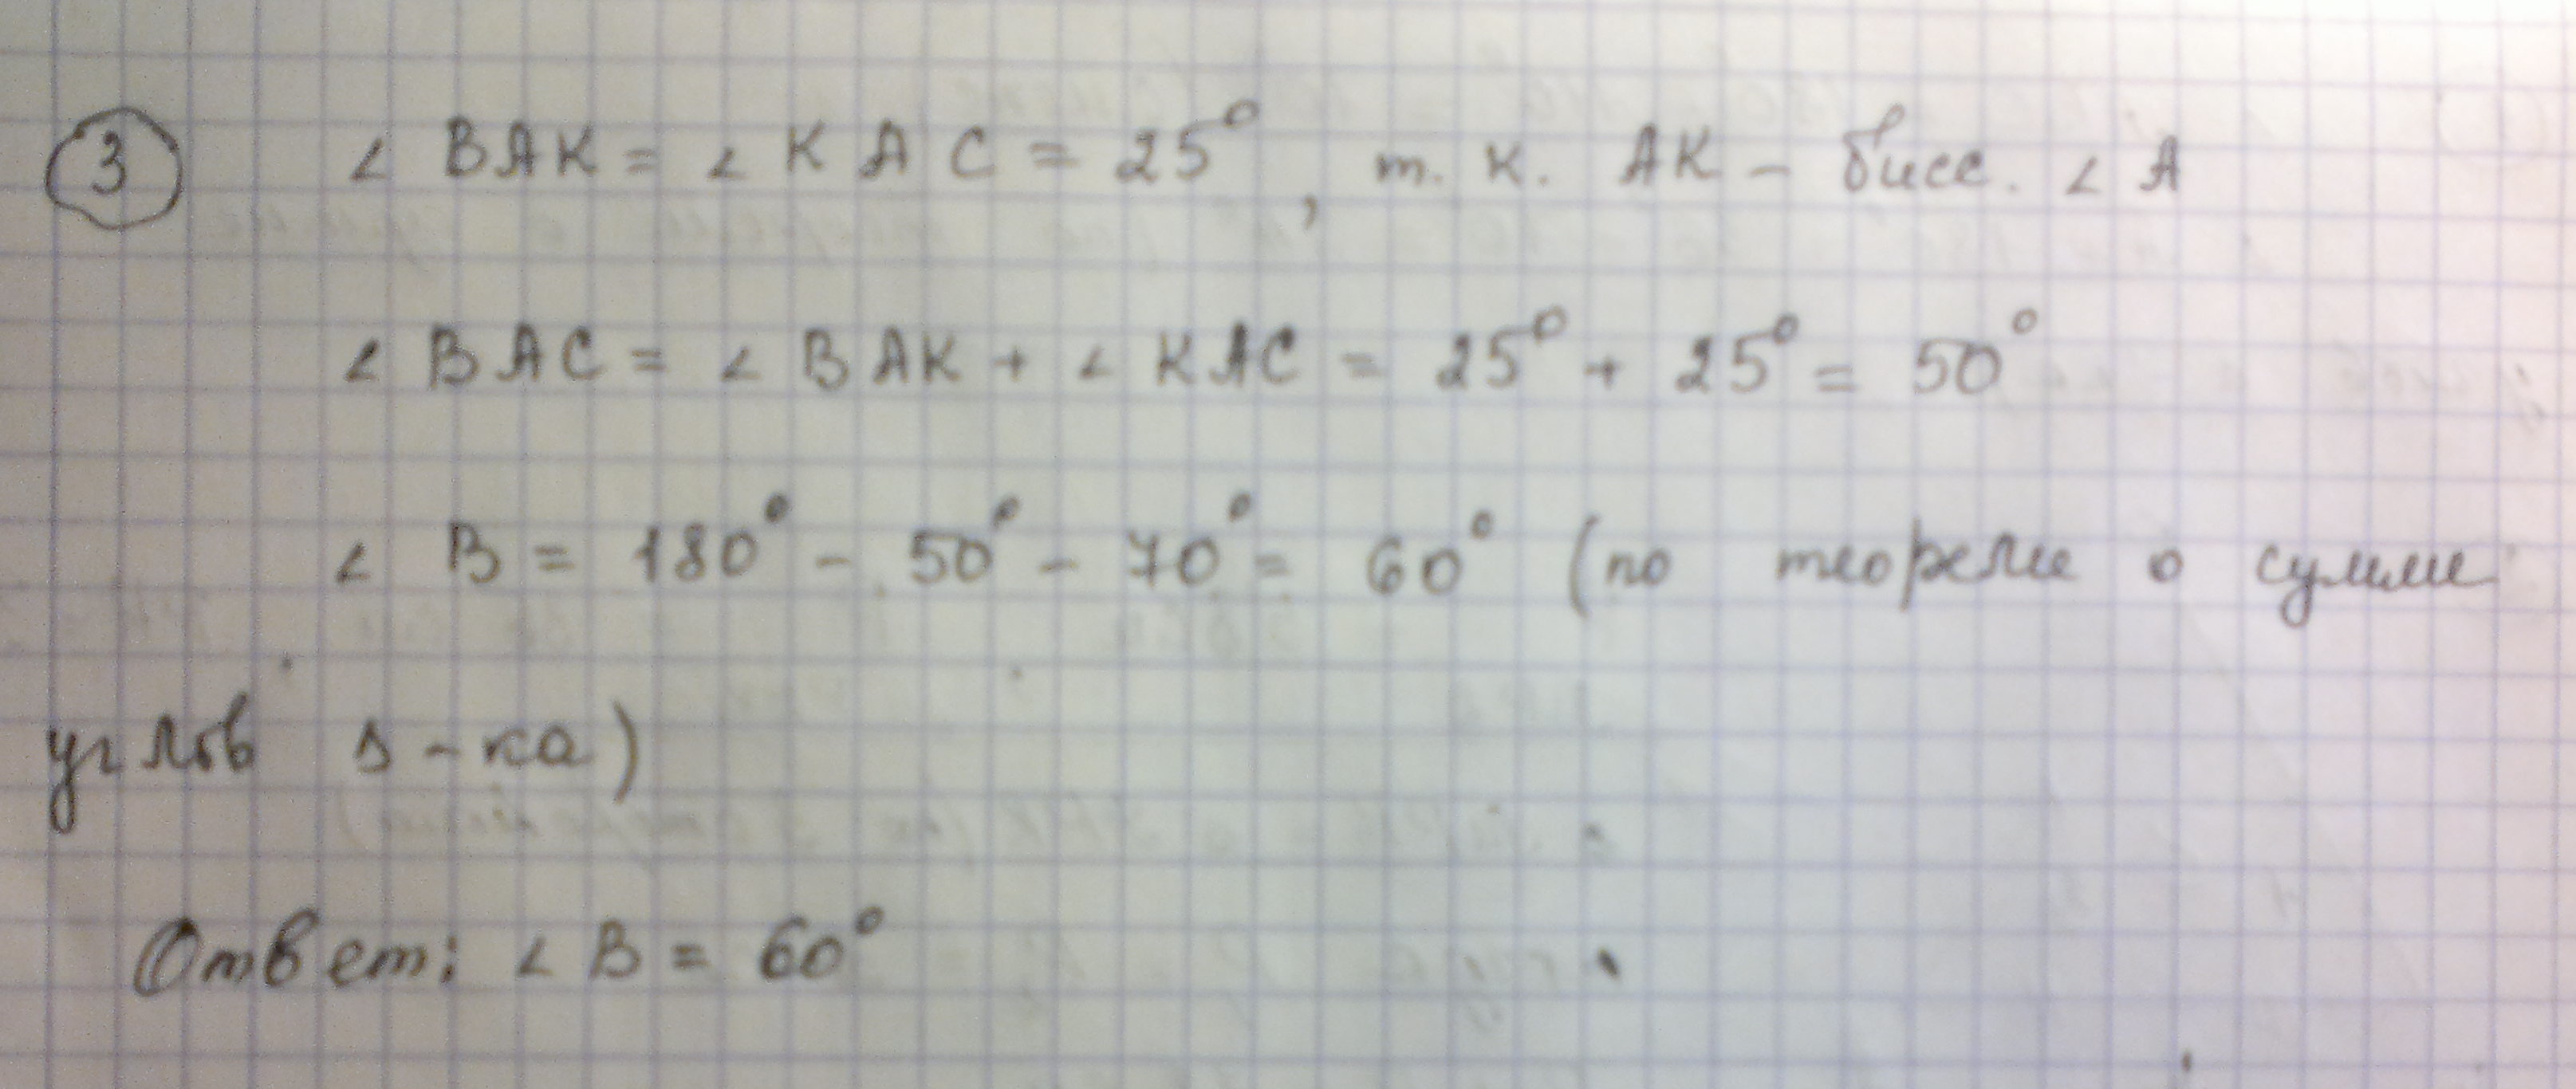 3 ∠ BAK = ∠ KAC = 25°, т. к. AK - бисс. ∠ A
∠ BAC = ∠ BAK + ∠ KAC = 25° + 25° = 50°
∠ B = 180° - 50° - 70° = 60° (по теореме о сумме
углов Δ-ка)
Ответ: ∠ B = 60°